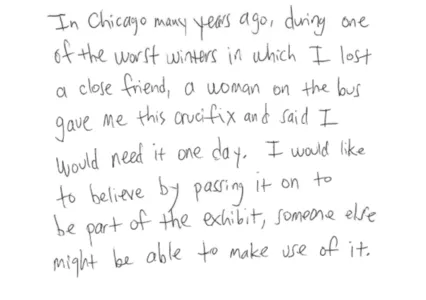 In Chicago many years ago, during one
of the worst winters in which I lost
a close friend, a woman on the bus
gave me this crucifix and said I
would need it one day. I would like
to believe by passing it on to
be part of the exhibit, someone else
might be able to make use of it.